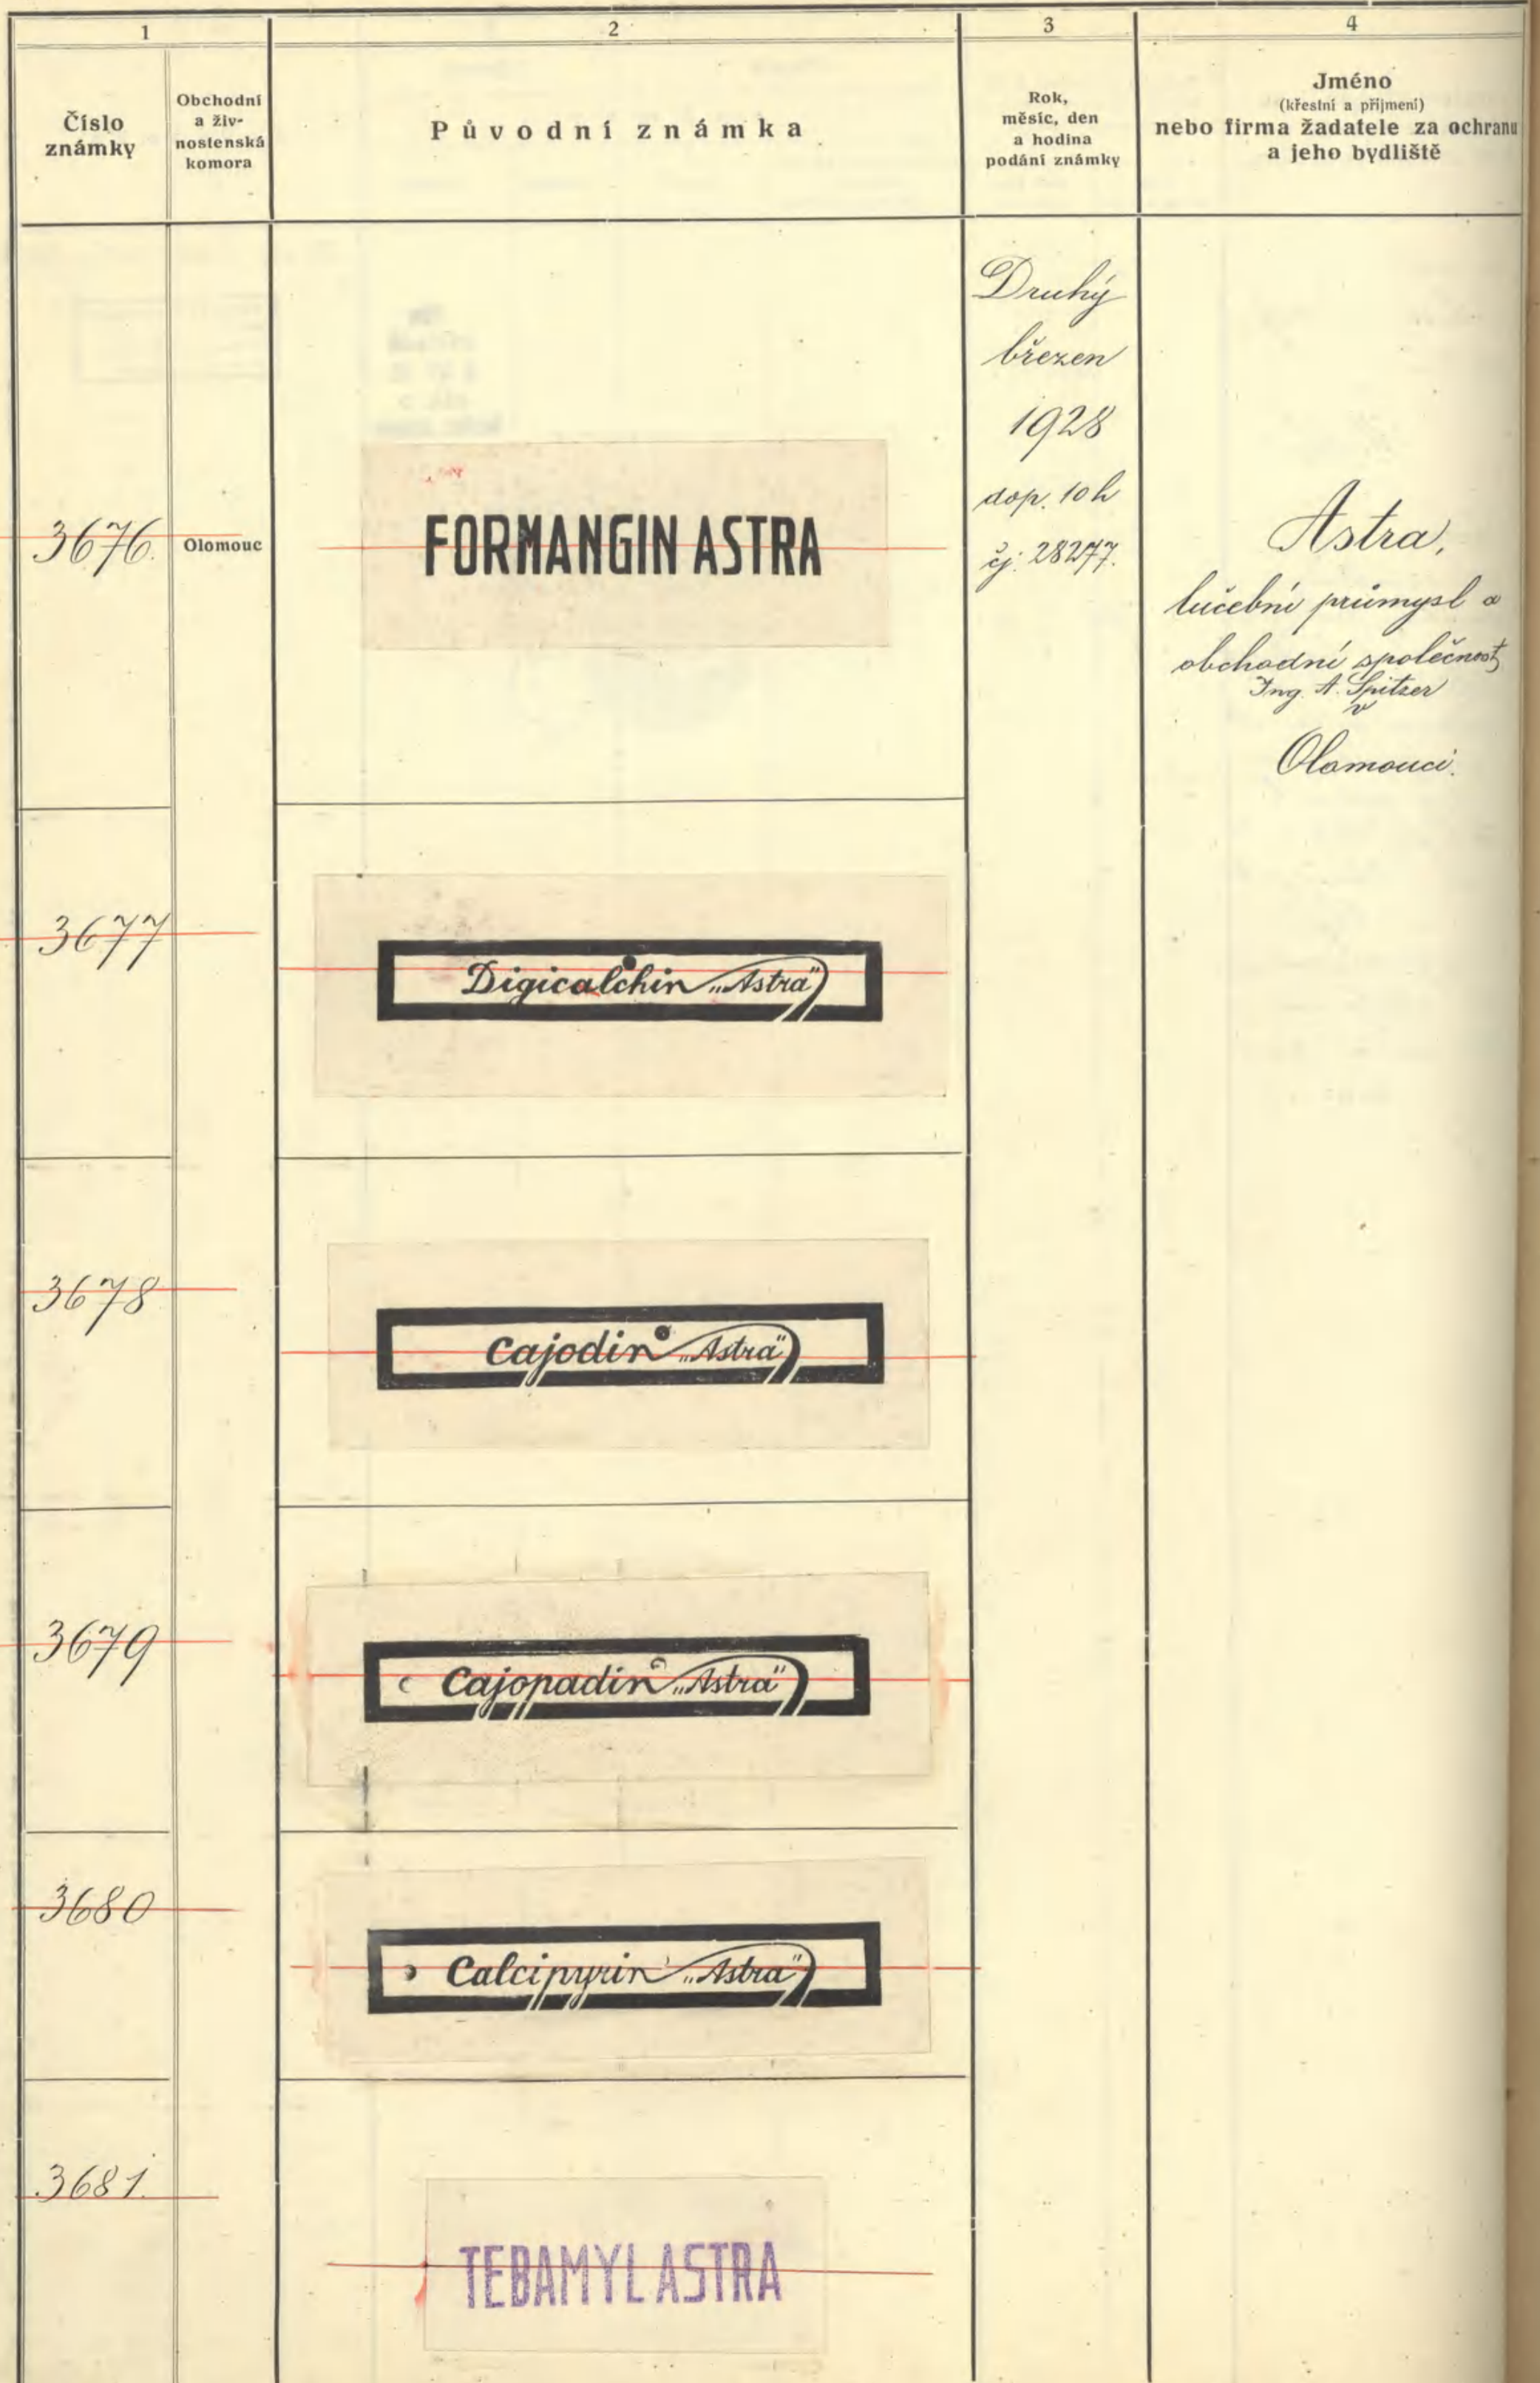 1
2
3
4
Číslo
známky
Obchodní
a živ-
nostenská
komora
Původní známka
Rok,
měsíc, den
a hodina
podání známky
Jméno
(křestní a příjmení)
nebo firma žadatele za ochranu
a jeho bydliště
3676.
Olomouc
FORMANGIN ASTRA
Druhý
březen
1928
dop. 10 h
čj: 28277.
Astra,
lučební průmysl a
obchodní společnost
Ing. A. Spitzer
v
Olomouci.
3677
Digicalchin „Astra"
3678
Cajodin „Astra"
3679
Cajopadin „Astra"
3680
Calcipyrin „Astra"
3681.
TEBAMYL ASTRA